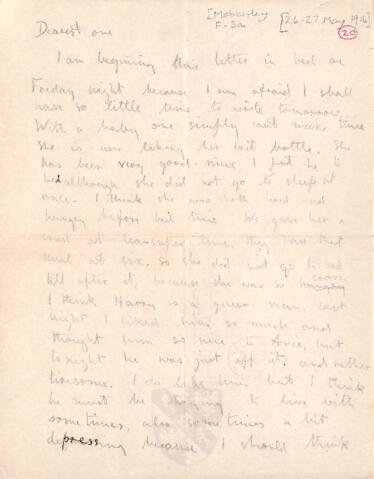 [Mobberley
F-Sa
[26-27 May 1916]
20
Dearest one
I am beginning this letter in bed on
Friday night because I am afraid I shall
have so little time to write tomorrow.
With a baby one simply can't make time
She is now taking her last bottle. She
has been very good since I put her to
bed although she did not go to sleep at
once. I think she was both tired and
hungry before bed time We gave her a
at tea-supper time, they have that
meal at six. so she did not go to bed
till after it, because she was so
I think Harry is a queer man. Last
night I liked him so much and
thought him so nice to Avie, but
tonight he was just off it, and rather
tiresome. I do like him but I think
he must be trying to live with
sometimes, also sometimes a bit
depressing because I should think